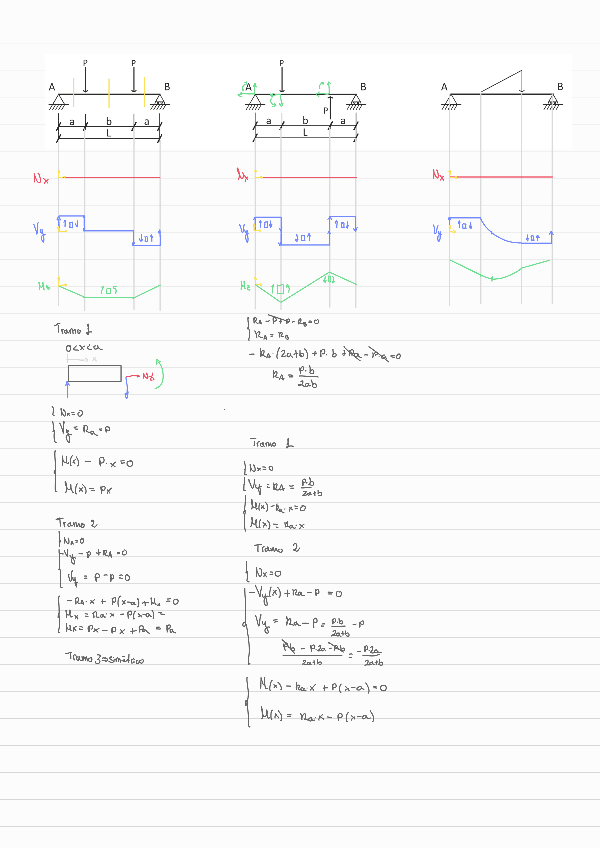 P P
A B
a b a
L
P
A B
P
a b a
L
A B
Nx
Vy
Mz
Nx
Vy
Mz
Nx
Vy
Tramo 1
0<x<a
x
Nx
Nx=0
Vy = Ra = P
M(x) - P·x = 0
M(x) = Px
Tramo 2
Nx=0
-Vy - P + RA = 0
Vy = P - P = 0
-RA·x + P(x-a) + Mx = 0
Mx = Ra·x - P(x-a) =
Mx = Px - Px + Pa = Pa
Tramo 3 => simétrico
RA - P + P - RB = 0
RA = RB
- RA·(2a+b) + P·b + Pa - P·a = 0
RA = P·b / 2ab
Tramo 1
Nx=0
Vy = RA = P·b / 2a+b
M(x) - Ra·x = 0
M(x) = Ra·x
Tramo 2
Nx=0
-Vy(x) + Ra - P = 0
Vy = Ra - P = P·b / 2a+b - P
Pb - P2a - Pb / 2a+b = -P2a / 2a+b
M(x) - Ra·x + P(x-a) = 0
M(x) = Ra·x - P(x-a)